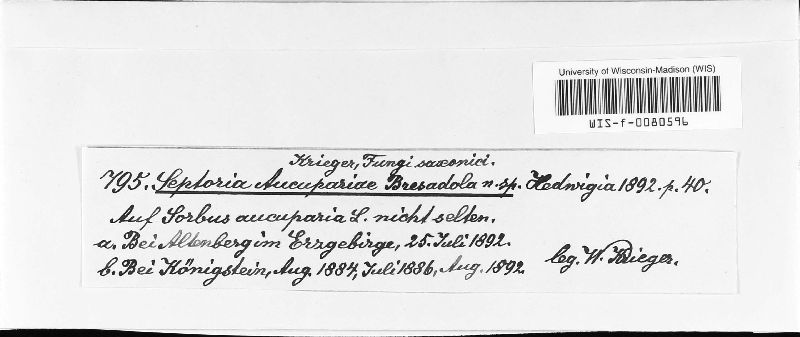 University of Wisconsin-Madison (WIS)
WIS-f-0080596
Krieger, Fungi saxonici.
795. Septoria Aucupariae Bresadola n. sp. Hedwigia 1892. p. 40.
Auf Sorbus aucuparia L. nicht selten.
a. Bei Altenberg im Erzgebirge, 25. Juli 1892.
b. Bei Königstein, Aug. 1884, Juli 1886, Aug. 1892. leg. W. Krieger.